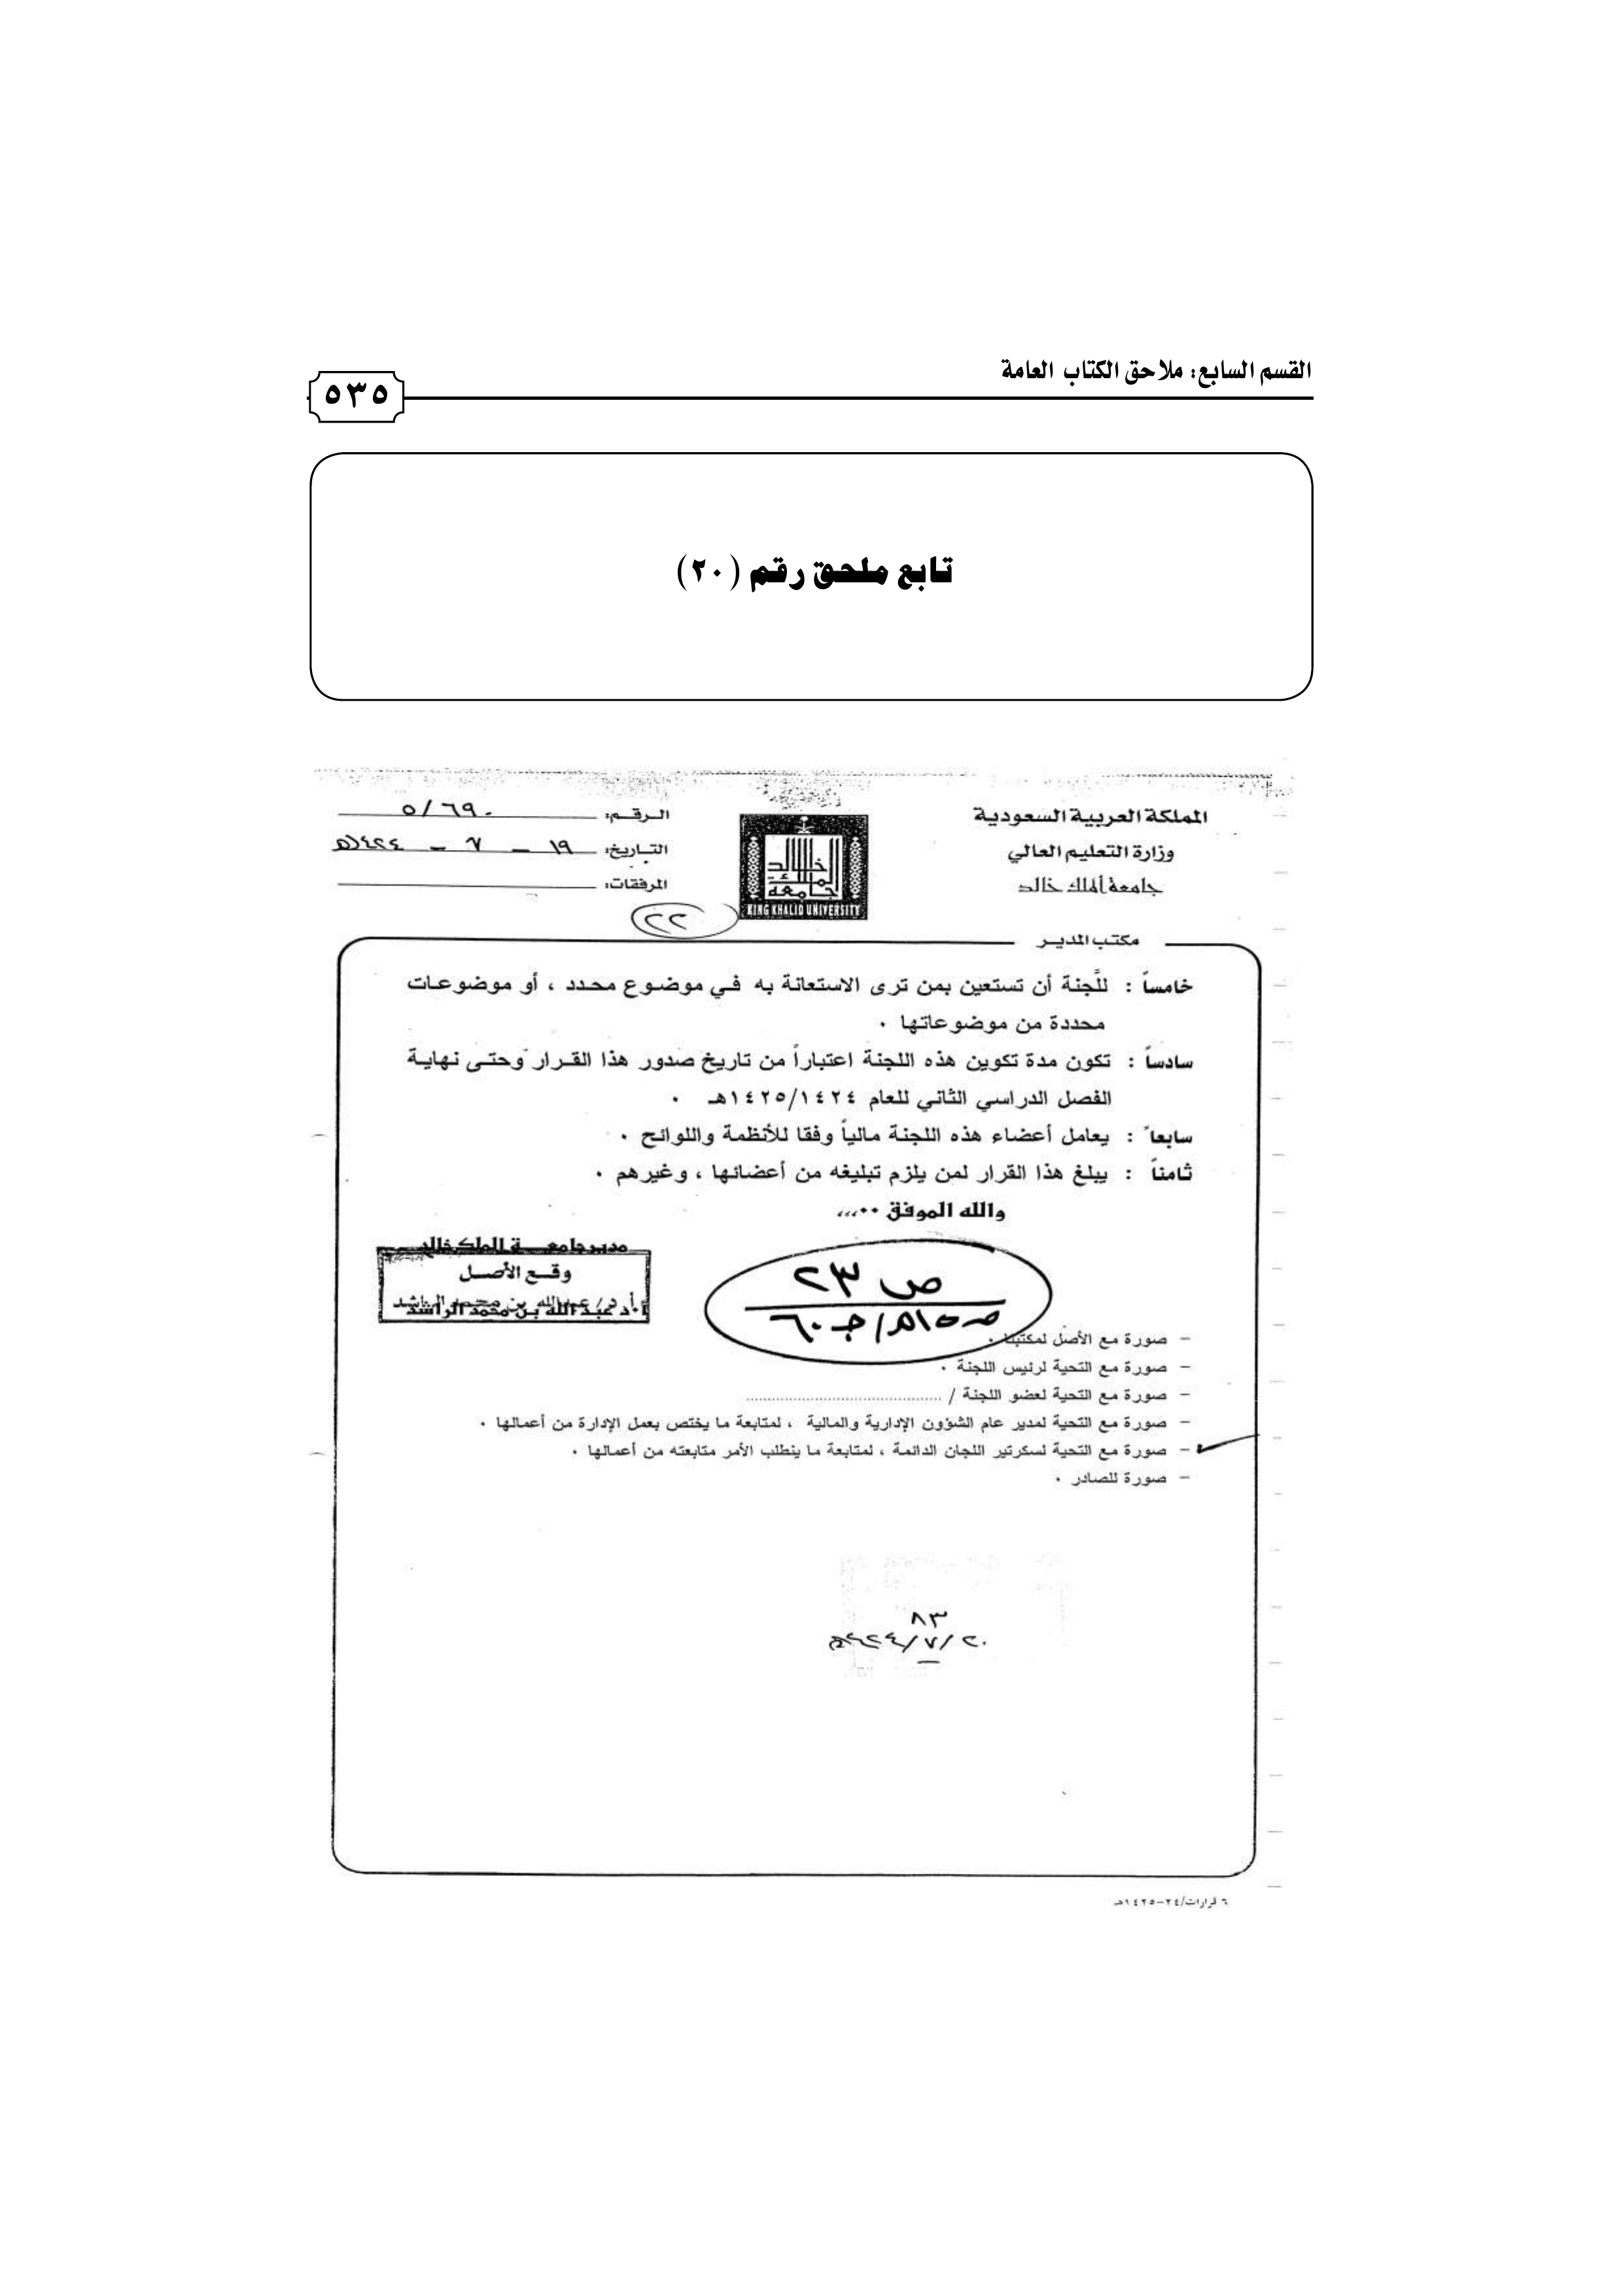 القسم السابع: ملاحق الكتاب العامة
٥٣٥
تابع ملحق رقم (٢٠)
المملكة العربية السعودية
وزارة التعليم العالي
جامعة الملك خالد
KING KHALID UNIVERSITY
الرقـم: ٥/٦٩٠
التـاريخ: ١٩ - ٧ - ١٤٢٤هـ
المرفقات:
٢٢
مكتب المديـر
خامساً : للَّجنة أن تستعين بمن ترى الاستعانة به فـي موضـوع محـدد ، أو موضوعـات
محددة من موضوعاتها .
سادساً : تكون مدة تكوين هذه اللجنة اعتباراً من تاريخ صدور هذا القـرار وحتـى نهايـة
الفصل الدراسي الثاني للعام ١٤٢٥/١٤٢٤هـ .
سابعاً : يعامل أعضاء هذه اللجنة مالياً وفقا للأنظمة واللوائح .
ثامناً : يبلغ هذا القرار لمن يلزم تبليغه من أعضائها ، وغيرهم .
والله الموفق ..،،،
مدير جامعـــة الملك خالد
وقـع الأصـل
أ.د/ عبدالله بن محمد الراشد
أ.د عبد الله بن محمد الراشد
ص ٢٣
– صورة مع الأصل لمكتبنا .
– صورة مع التحية لرئيس اللجنة .
– صورة مع التحية لعضو اللجنة / ........................................
– صورة مع التحية لمدير عام الشؤون الإدارية والمالية ، لمتابعة ما يختص بعمل الإدارة من أعمالها .
– صورة مع التحية لسكرتير اللجان الدائمة ، لمتابعة ما يتطلب الأمر متابعته من أعمالها .
– صورة للصادر .
٨٣
٢٠/٧/١٤٢٤هـ
٦ قرارات/٢٤-١٤٢٥هـ